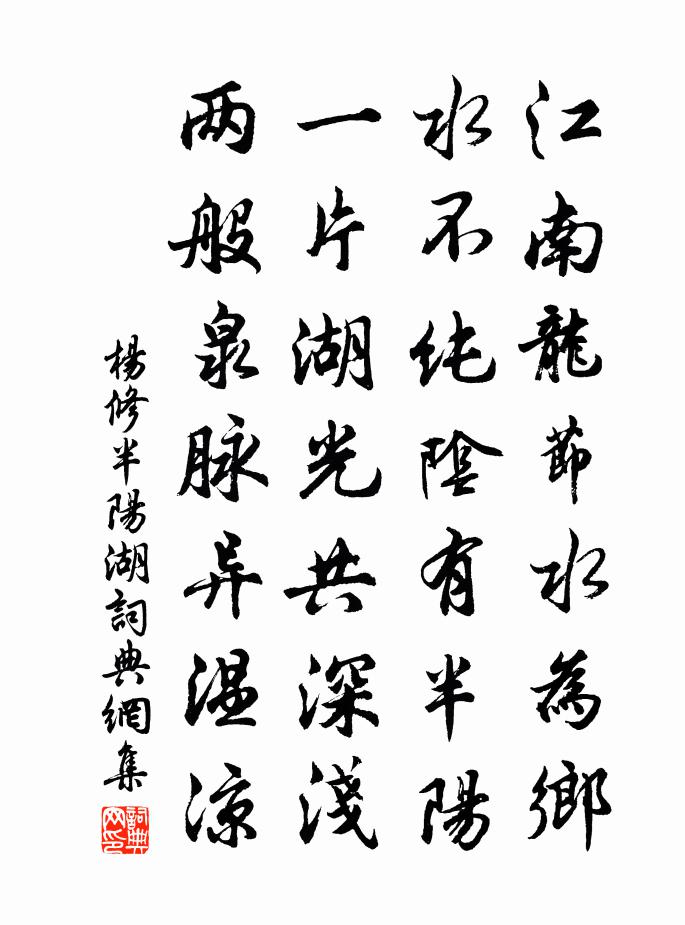 江南龍節水為鄉
水不纯陰有半陽
一片湖光共深淺
两般泉脉异温凉
楊修半陽湖詞典網集
詞典网印